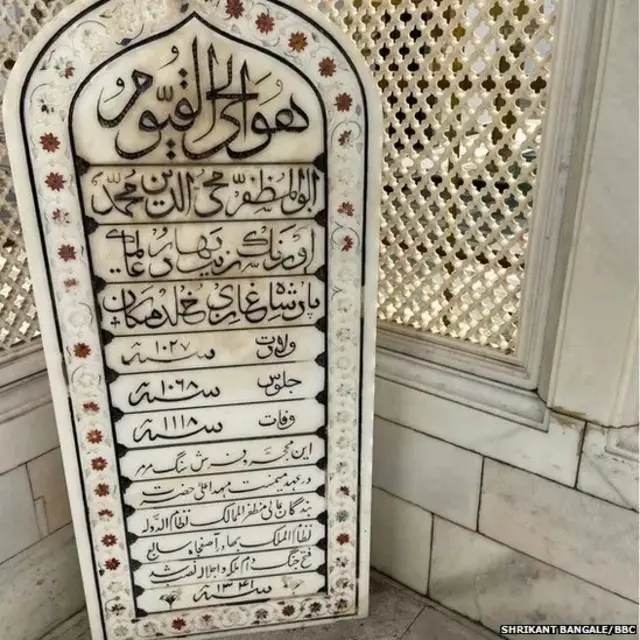 هو الحی القیوم
ابوالمظفر محی الدین محمد
اورنگ زیب بهادر عالمگیر
پادشاه غازی خلد مکان
ولادت سنه ۱۰۲۷
جلوس سنه ۱۰۶۸
وفات سنه ۱۱۱۸
این محجر و فرش سنگ مرمر
در عهد میمنت مهد اعلی حضرت
بندگان عالی مظفر الممالک نظام الدوله
نظام الملک بهادر آصفجاه سابع
فتح جنگ دام ملکه و اجلاله نصب شد
سنه ۱۳۴۱
SHRIKANT BANGALE/BBC